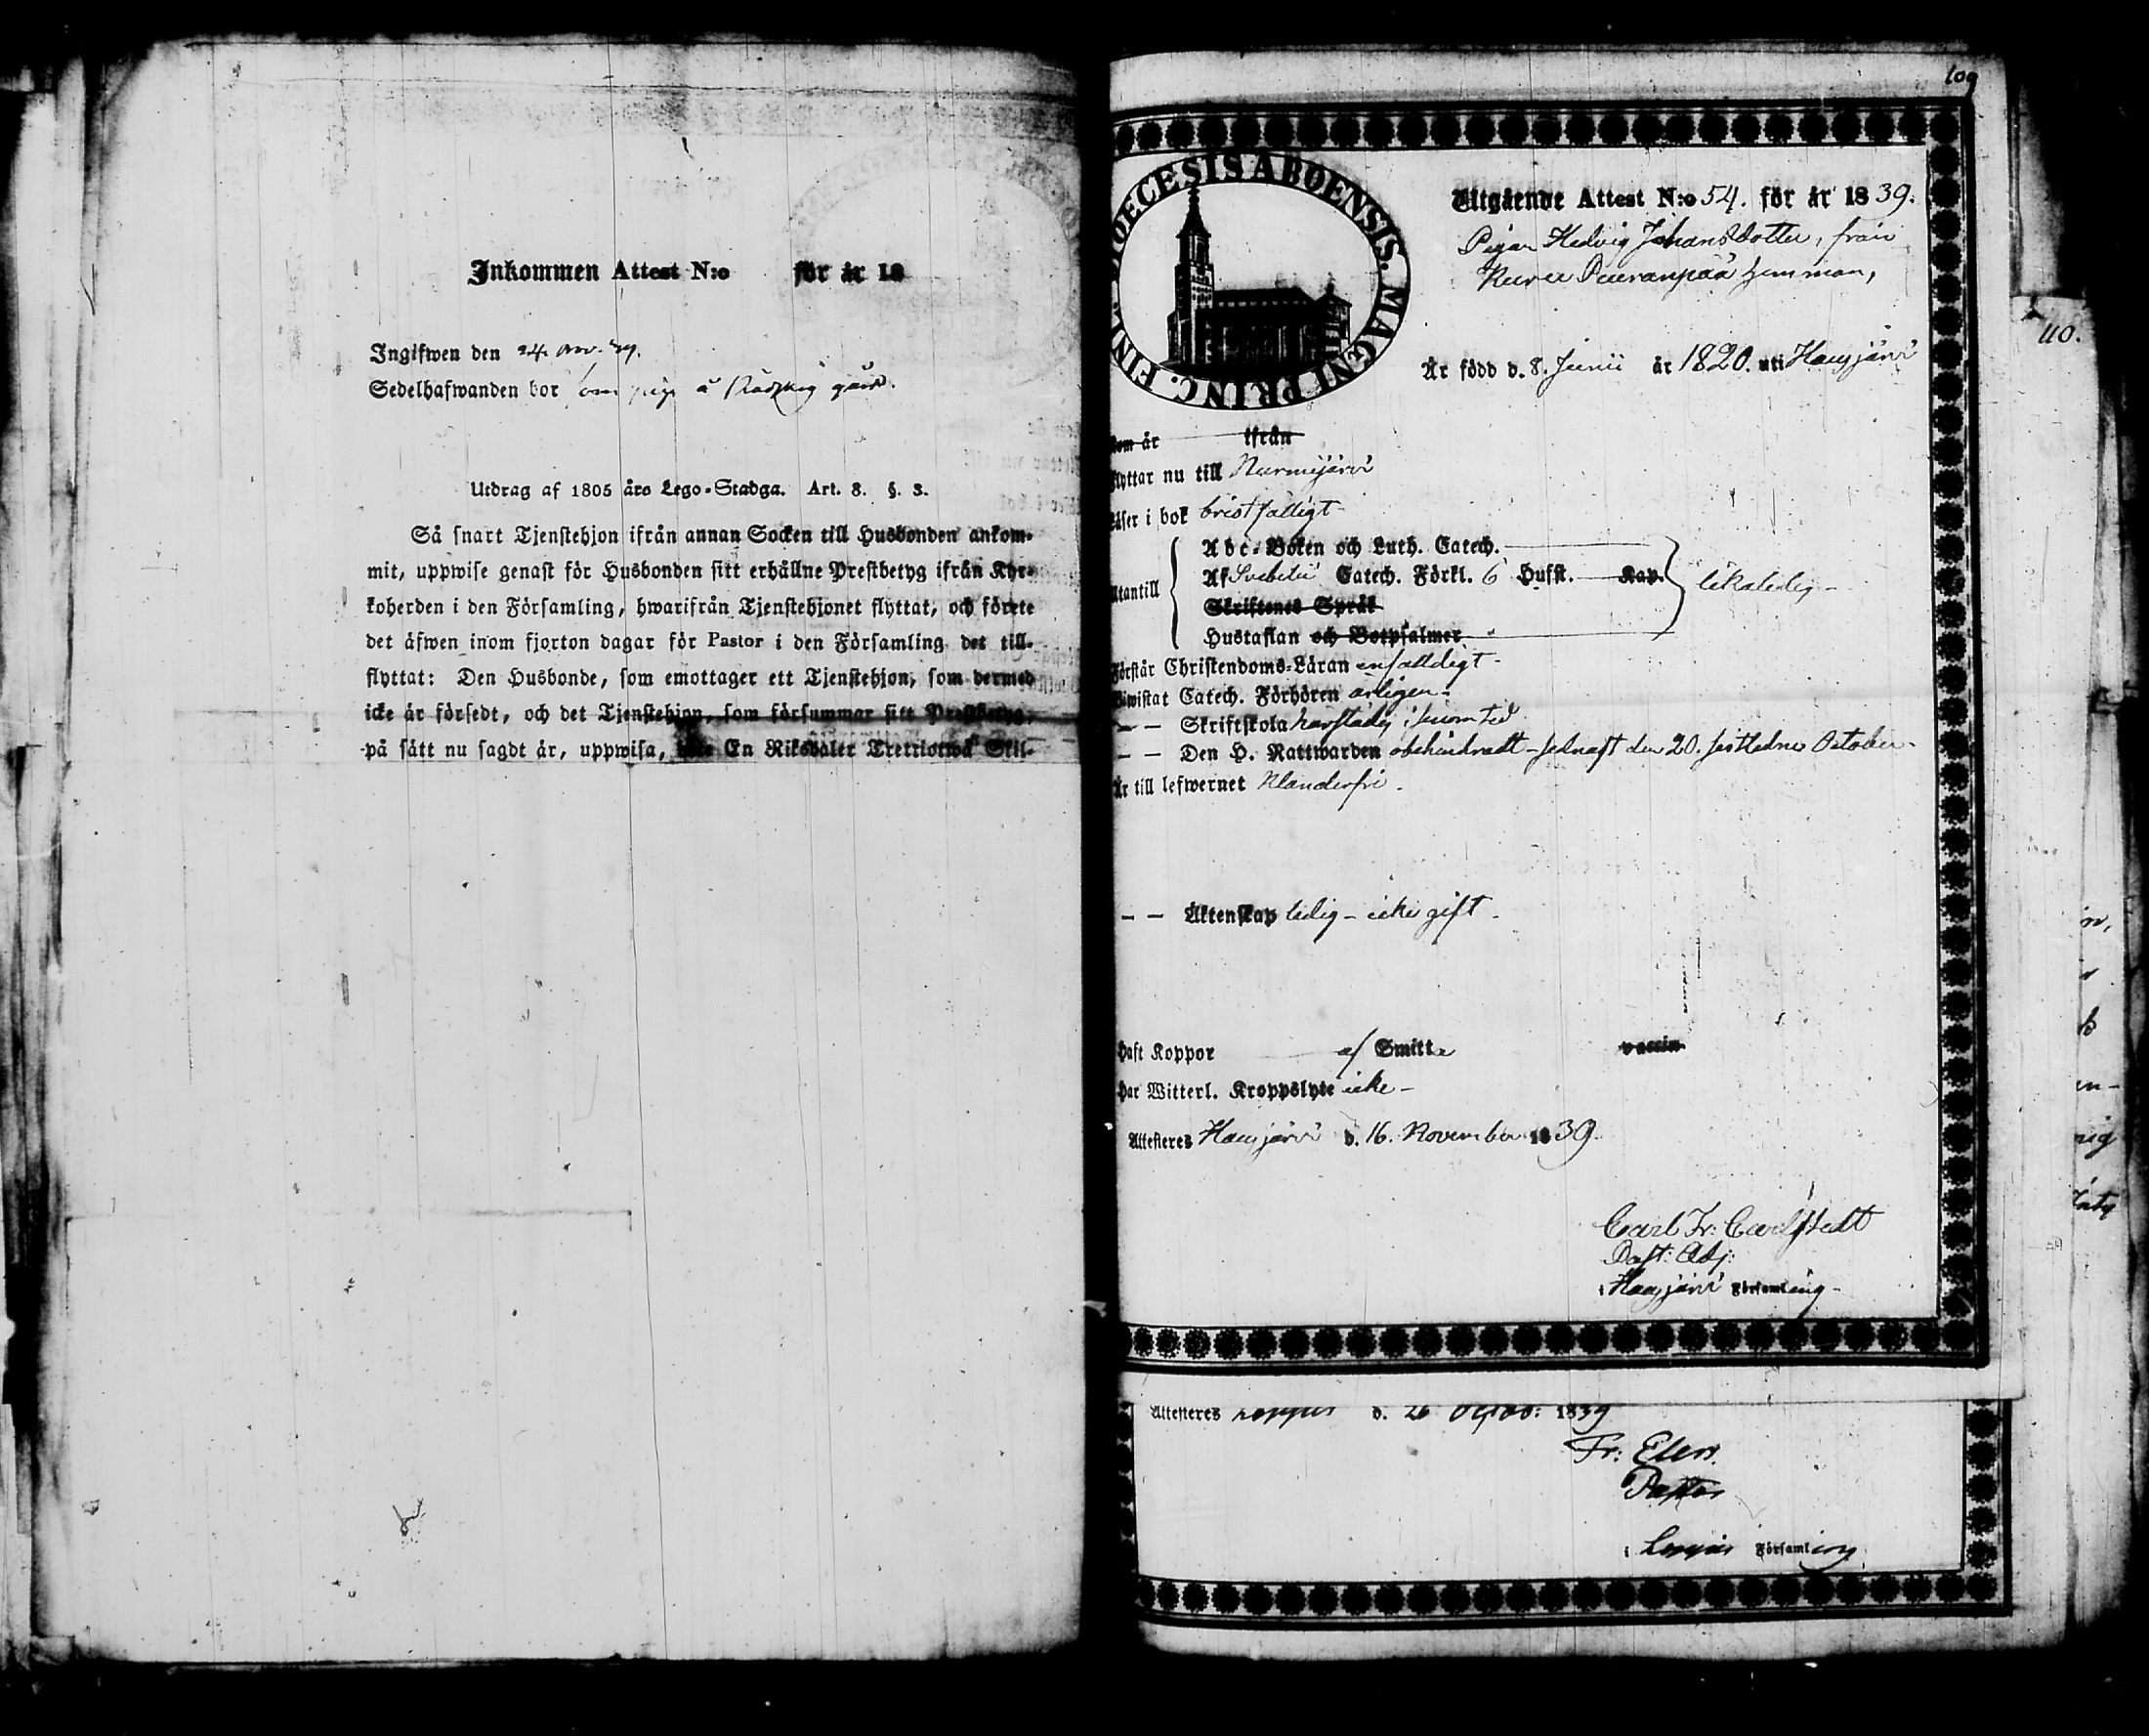 Inkommen Attest N:o för år 18
Ingifwen den 24. nov. 39.
Sedelhafwanden bor som piga å gård.
Utdrag af 1805 års Lego-Stadga. Art. 8. §. 3.
Så snart Tjenstehjon ifrån annan Socken till Husbonden ankom-
mit, uppwise genast för Husbonden sitt erhållne Prestbetyg ifrån Kyr-
koherden i den Församling, hwarifrån Tjenstehjonet flyttat, och förete
det äfwen inom fjorton dagar för Pastor i den Församling det till-
flyttat: Den Husbonde, som emottager ett Tjenstehjon, som dermed
icke är försedt, och det Tjenstehjon, som försummar sitt Prestbetyg,
på sätt nu sagdt är, uppwisa, böte En Riksdaler Trettiotwå Skil-
109
DIOECESIS ABOENSIS. MAGNI PRINC. FINL.
Utgående Attest N:o 54. för år 1839.
Pigan Hedvig Johansdotter, från
Peuranpää hemman,
Är född d. 8. Junii år 1820. uti Hausjärvi
kom år ifrån
flyttar nu till Nurmijärvi
Läser i bok bristfälligt
Abc-Boken och Luth. Catech.
Utantill Af Svebelii Catech. Förkl. 6 Hufst. Kap. likaledes
Skriftenes Språk
Hustaflan och Botpsalmer
Förstår Christendoms-Läran enfalldigt
Biwistat Catech. Förhören årligen
— — Skriftskola härstädes i sinom tid
— — Den H. Nattwarden obehindradt sednast den 20. sistledne October
Är till lefwernet Klanderfri.
— — Äktenskap ledig - icke gift.
Haft Koppor af Smitta vaccin
Har Witterl. Kroppslyte icke
Attesteres Hausjärvi d. 16. November 1839.
Carl Fr: Carlstedt
Past: Adj:
i Hausjärvi Församling
Attesteres Loppis d. 26 1839
Fr: Elers.
Pastor
i Loppis Församling
110.